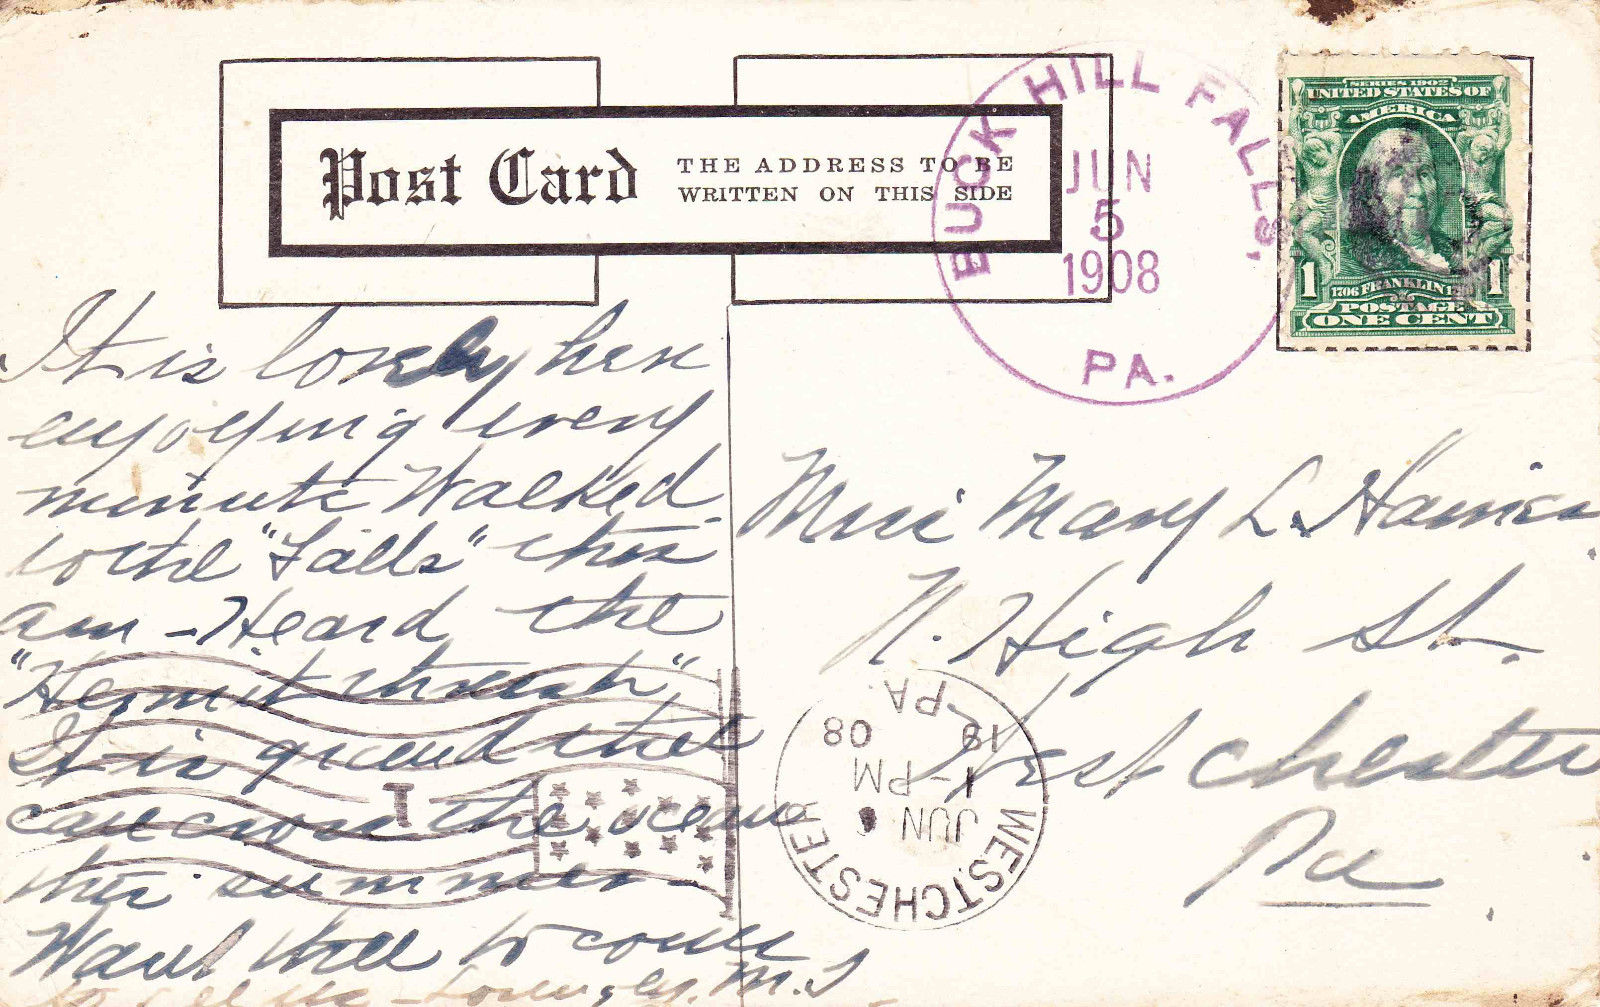 Post Card
THE ADDRESS TO BE
WRITTEN ON THIS SIDE
BUCK HILL FALLS,
JUN
5
1908
PA.
SERIES 1902
UNITED STATES OF
AMERICA
1706 FRANKLIN 1790
POSTAGE
1 1
ONE CENT
It is lovely here
enjoying every
minute Walked
to the "Falls" this
am - Heard the
"Hermit thrush"
It is grand
can cross the ocean
this summer -
Want to come
to see us
Miss Mary L. Haines
N. High St.
West Chester
Pa
WESTCHESTER
JUN
1-PM
08
PA